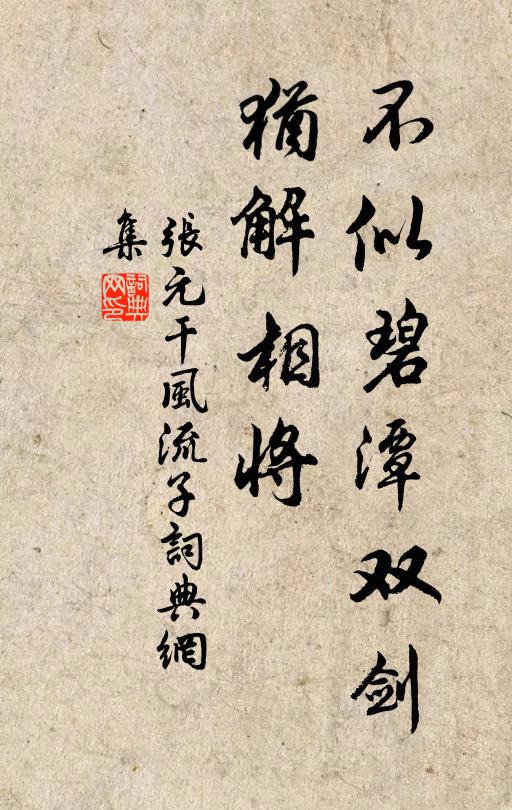 不似碧潭双剑
猶解相将
張元干風流子詞典網
集
詞典
网印